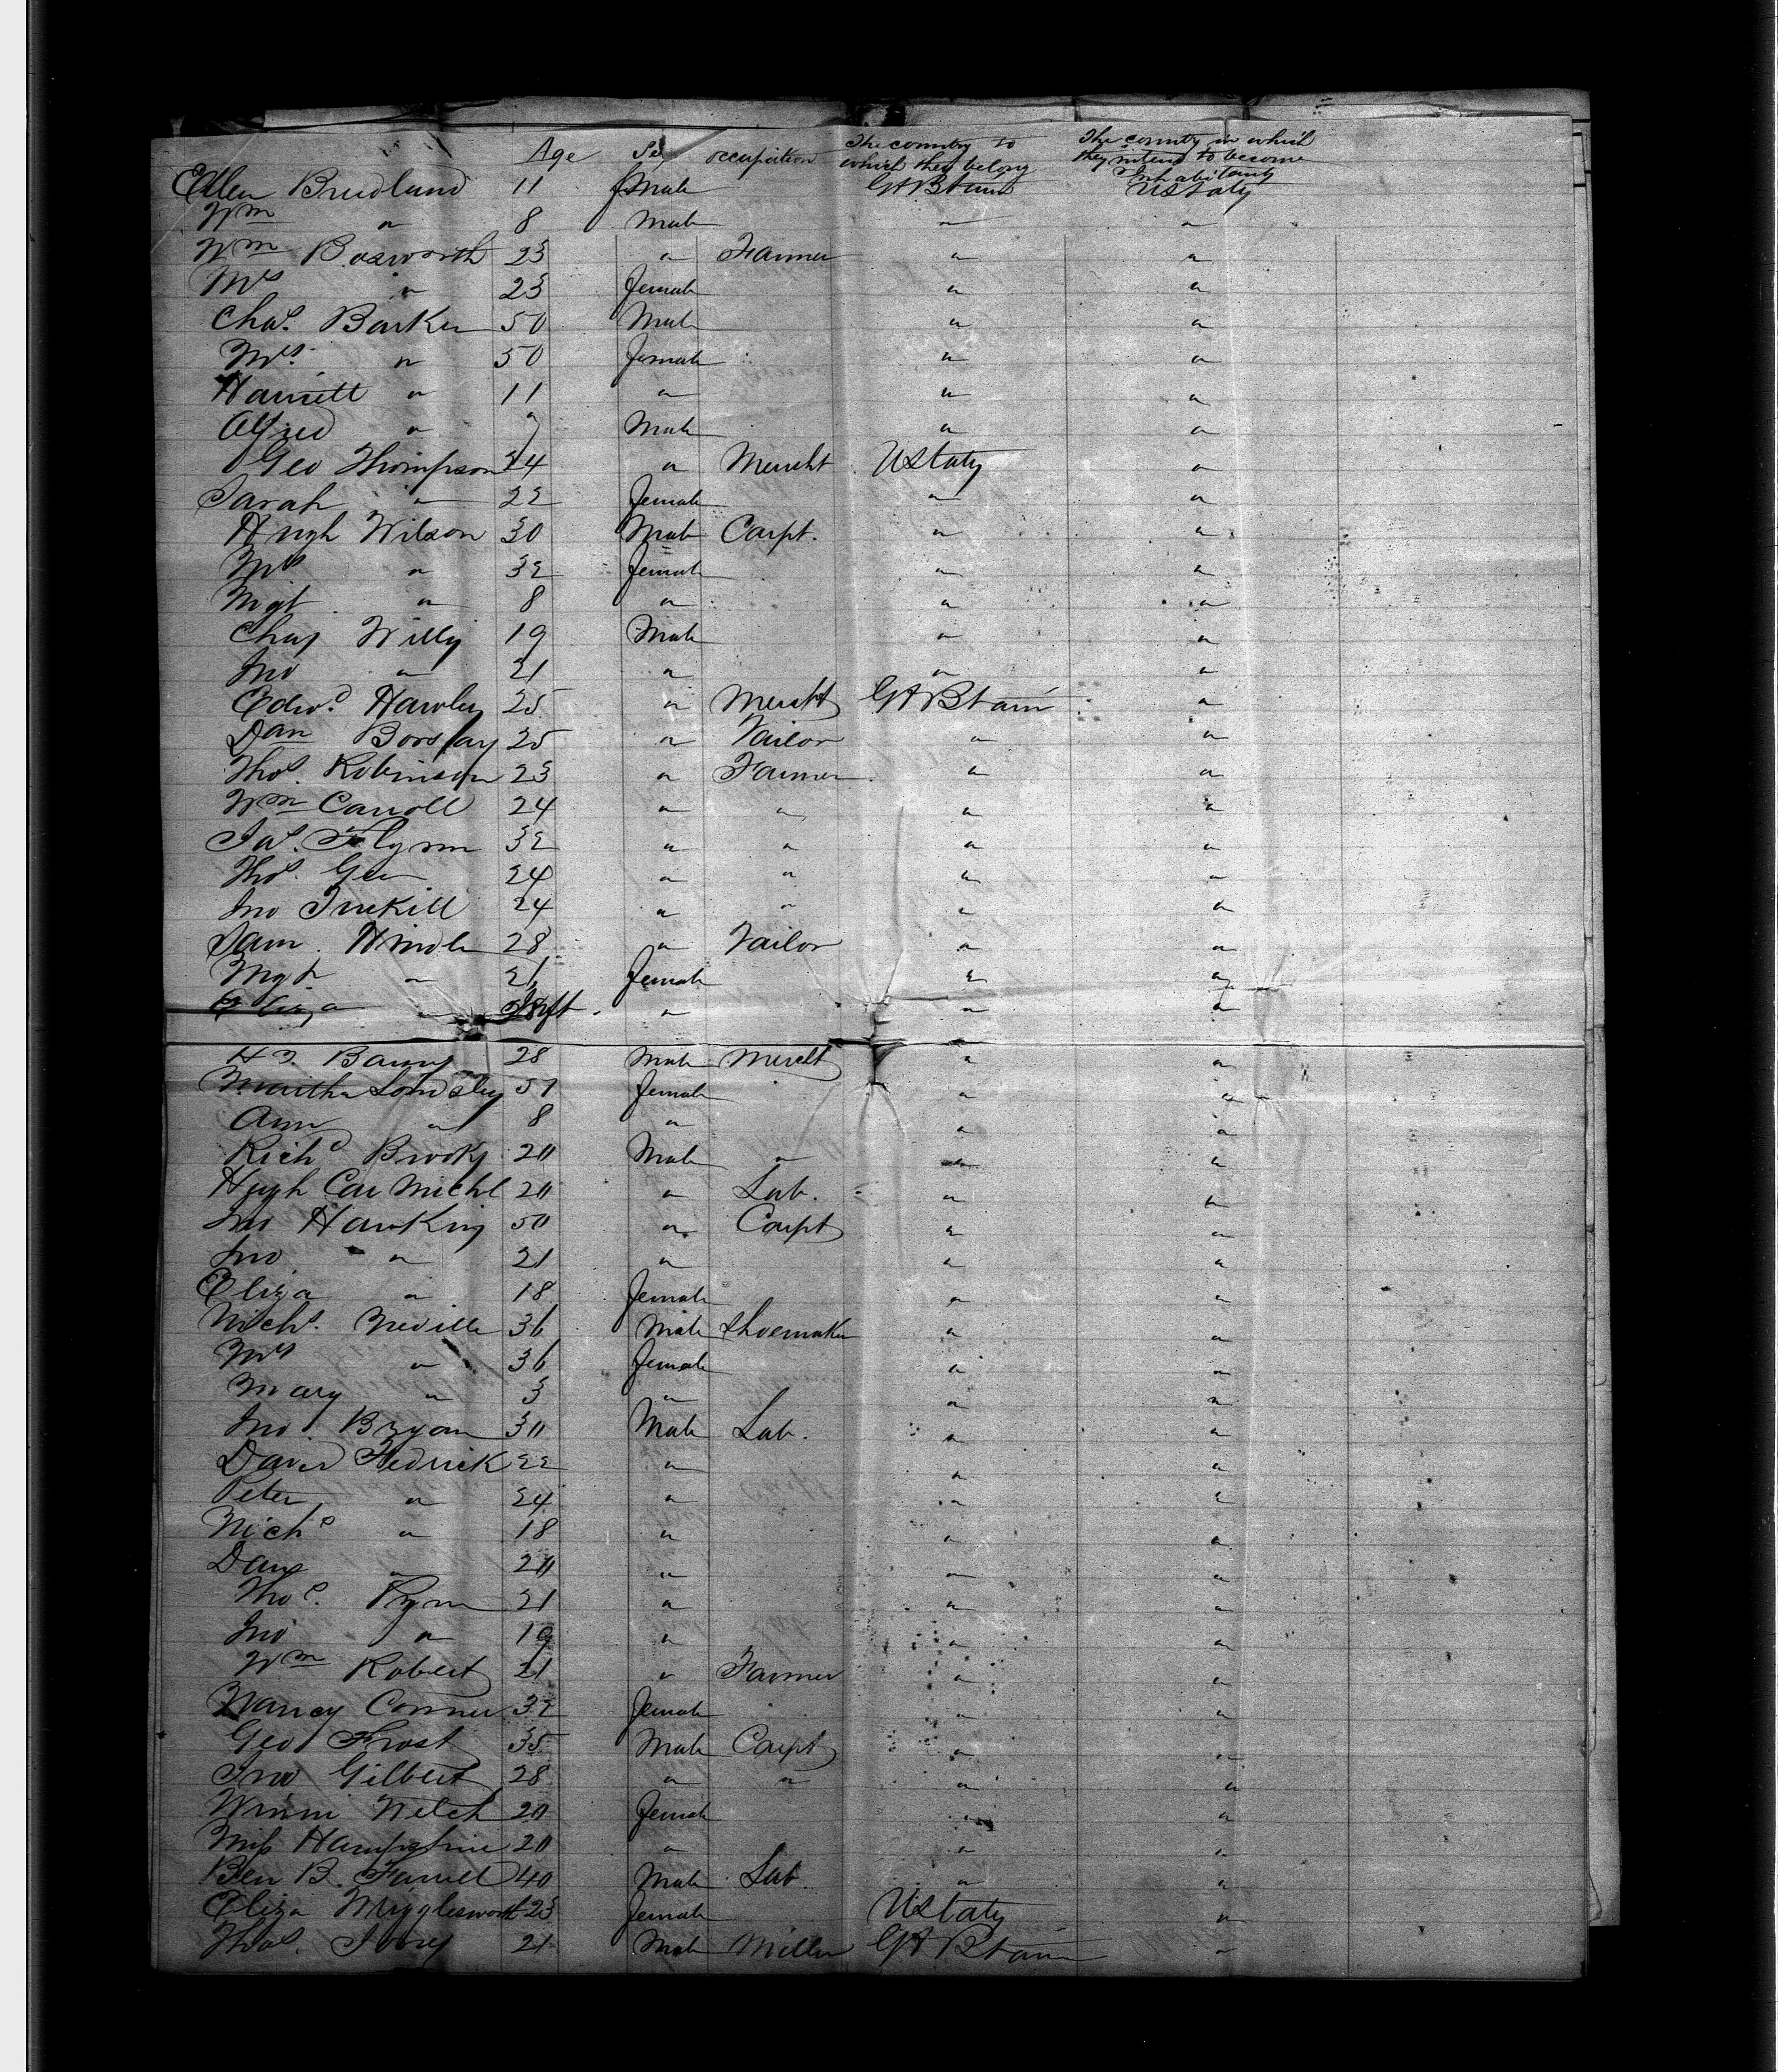 Age Sex occupation The country to which they belong The country in which they intend to become Inhabitants
Ellen Bredlund 11 female Gt Btain UStates
Wm " 8 Male " "
Wm Bosworth 23 " Farmer " "
Mrs " 23 female " "
Chas. Barker 50 Male " "
Mrs. " 50 female " "
Harriett " 11 " " "
Alfred " 9 Male " "
Geo Thompson 24 " Mercht UStates "
Sarah " 22 female " "
Hugh Wilson 30 Male Carpt. " "
Mrs " 32 female " "
Mgt " 8 " " "
Chas Willis 19 Male " "
Jno " 21 " " "
Edwd Hawley 25 " Mercht Gt Btain "
Dan 25 " Tailor " "
Thos. Robinson 23 " Farmer " "
Wm Carroll 24 " " " "
Jas. Flynn 32 " " " "
Thos. Gee 24 " " " "
Jno 24 " " " "
Sam. Hindle 28 " Tailor " "
Mgt " 21 female " "
Eliza " Inft. " " "
28 Male Mercht " "
Martha 51 female " "
Ann " 8 " " "
Richd Brooks 20 Male " " "
Hugh Car Michl 20 " Lab. " "
Jno Hawkins 50 " Carpt " "
Jno " 21 " " "
Eliza " 18 female " "
Nichs. Neville 36 Male Shoemaker " "
Mrs " 36 female " "
Mary " 3 " " "
Jno. Bryan 30 Male Lab. " "
David Fedrick 22 " " "
Peter " 24 " " "
Nichs " 18 " " "
Danl " 20 " " "
Thos. Pym 21 " " "
Jno " 19 " " "
Wm Robert 21 " Farmer " "
Nancy Conner 32 female " "
Geo Frost 35 Male Carpt " "
Jno Gilbert 28 " " " "
Winni Welch 20 female " "
Miss Hampshire 20 " " "
Ben B. Farrell 40 Male Lab. " "
Eliza Wigglesworth 23 female UStates "
Thos. Ivory 21 Male Miller Gt Btain "